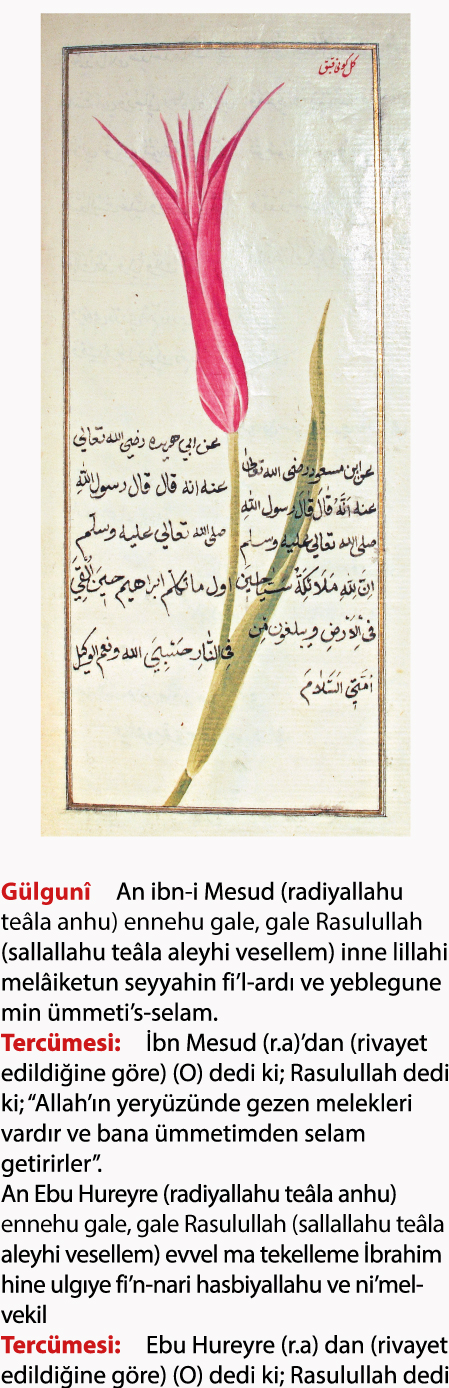 عن ابن مسعود رضى الله تعالى
عنه اَنَّهُ قَالَ قَالَ رسول الله
صلى الله تعالى عليه وسلم
اِنَّ لِلّٰهِ مَلَائِكَةً سَيَّاحِينَ
فى الْاَرْضِ ويبلغون مِن
اُمَّتِى السَّلَامَ
عن ابى هريره رضى الله تعالى
عنه انه قال قال رسول الله
صلى الله تعالى عليه وسلم
اول ما تكلم ابراهيم حين اُلْقِىَ
فِى النَّارِ حَسْبِىَ الله ونعم الوكيل
Gülgunî An ibn-i Mesud (radiyallahu
teâla anhu) ennehu gale, gale Rasulullah
(sallallahu teâla aleyhi vesellem) inne lillahi
melâiketun seyyahin fi’l-ardı ve yeblegune
min ümmeti’s-selam.
Tercümesi: İbn Mesud (r.a)’dan (rivayet
edildiğine göre) (O) dedi ki; Rasulullah dedi
ki; “Allah’ın yeryüzünde gezen melekleri
vardır ve bana ümmetimden selam
getirirler”.
An Ebu Hureyre (radiyallahu teâla anhu)
ennehu gale, gale Rasulullah (sallallahu teâla
aleyhi vesellem) evvel ma tekelleme İbrahim
hine ulgıye fi’n-nari hasbiyallahu ve ni’mel-
vekil
Tercümesi: Ebu Hureyre (r.a) dan (rivayet
edildiğine göre) (O) dedi ki; Rasulullah dedi